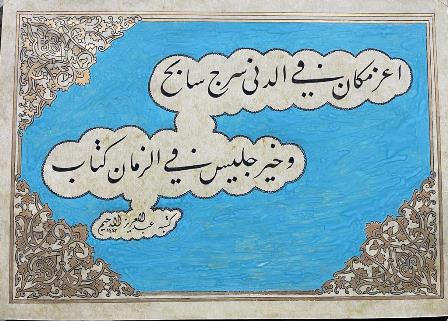 اعز مكان في الدنى سرج سابح
وخير جليس في الزمان كتاب
كتبه